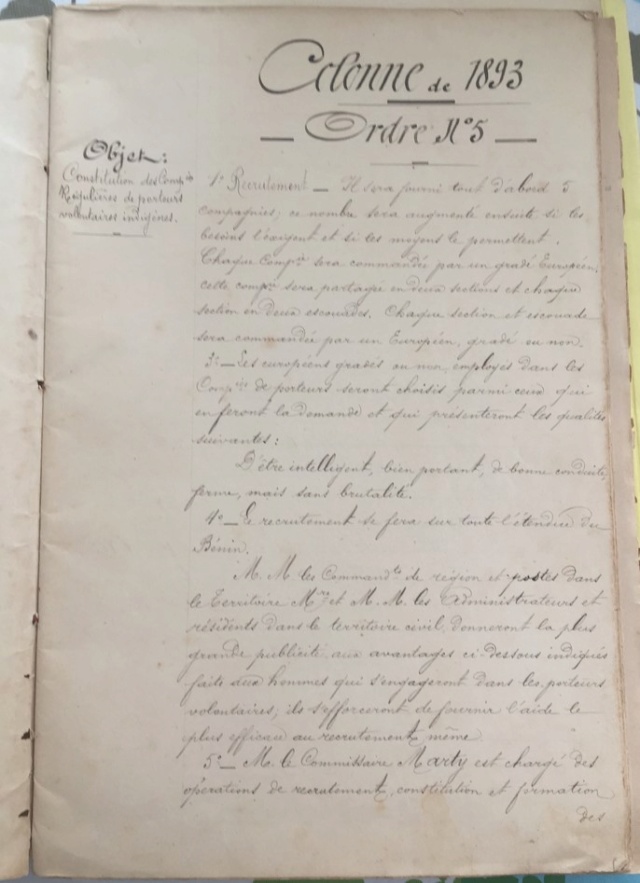 Colonne de 1893
Ordre N° 5
Objet:
Constitution des Comp.ies
Régulières de porteurs
volontaires indigènes.
1° Recrutement _ Il sera fourni tout d'abord 5
compagnies, ce nombre sera augmenté ensuite si les
besoins l'exigent et si les moyens le permettent.
Chaque Comp.ie sera commandée par un gradé Européen,
cette comp.ie sera partagée en deux sections et chaque
section en deux escouades. Chaque section et escouade
sera commandée par un Européen, gradé ou non.
3° _ Les européens gradés ou non, employés dans les
Comp.ies de porteurs seront choisis parmi ceux qui
en feront la demande et qui présenteront les qualités
suivantes:
D'être intelligent, bien portant, de bonne conduite,
ferme, mais sans brutalité.
4° _ Le recrutement se fera sur toute l'étendue du
Bénin.
M. M les Command.ts de région et postes dans
le Territoire M.re et M. M. les Administrateurs et
résidents dans le territoire civil, donneront la plus
grande publicité aux avantages ci-dessous indiqués
faits aux hommes qui s'engageront dans les porteurs
volontaires, ils s'efforceront de fournir l'aide le
plus efficace au recrutement même
5° _ M. le Commissaire Marty est chargé des
opérations de recrutement, constitution et formation
des